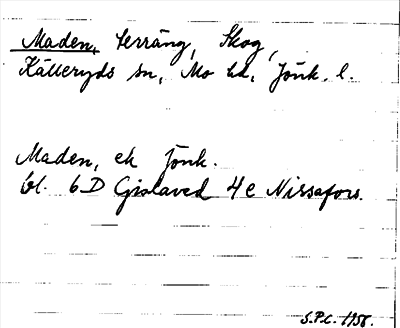 Maden, terräng, Skog,
Källeryds sn, Mo hd, Jönk. l.
Maden, ek Jönk.
bl. 6D Gislaved 4e Nissafors.
S.P.C. 1958.